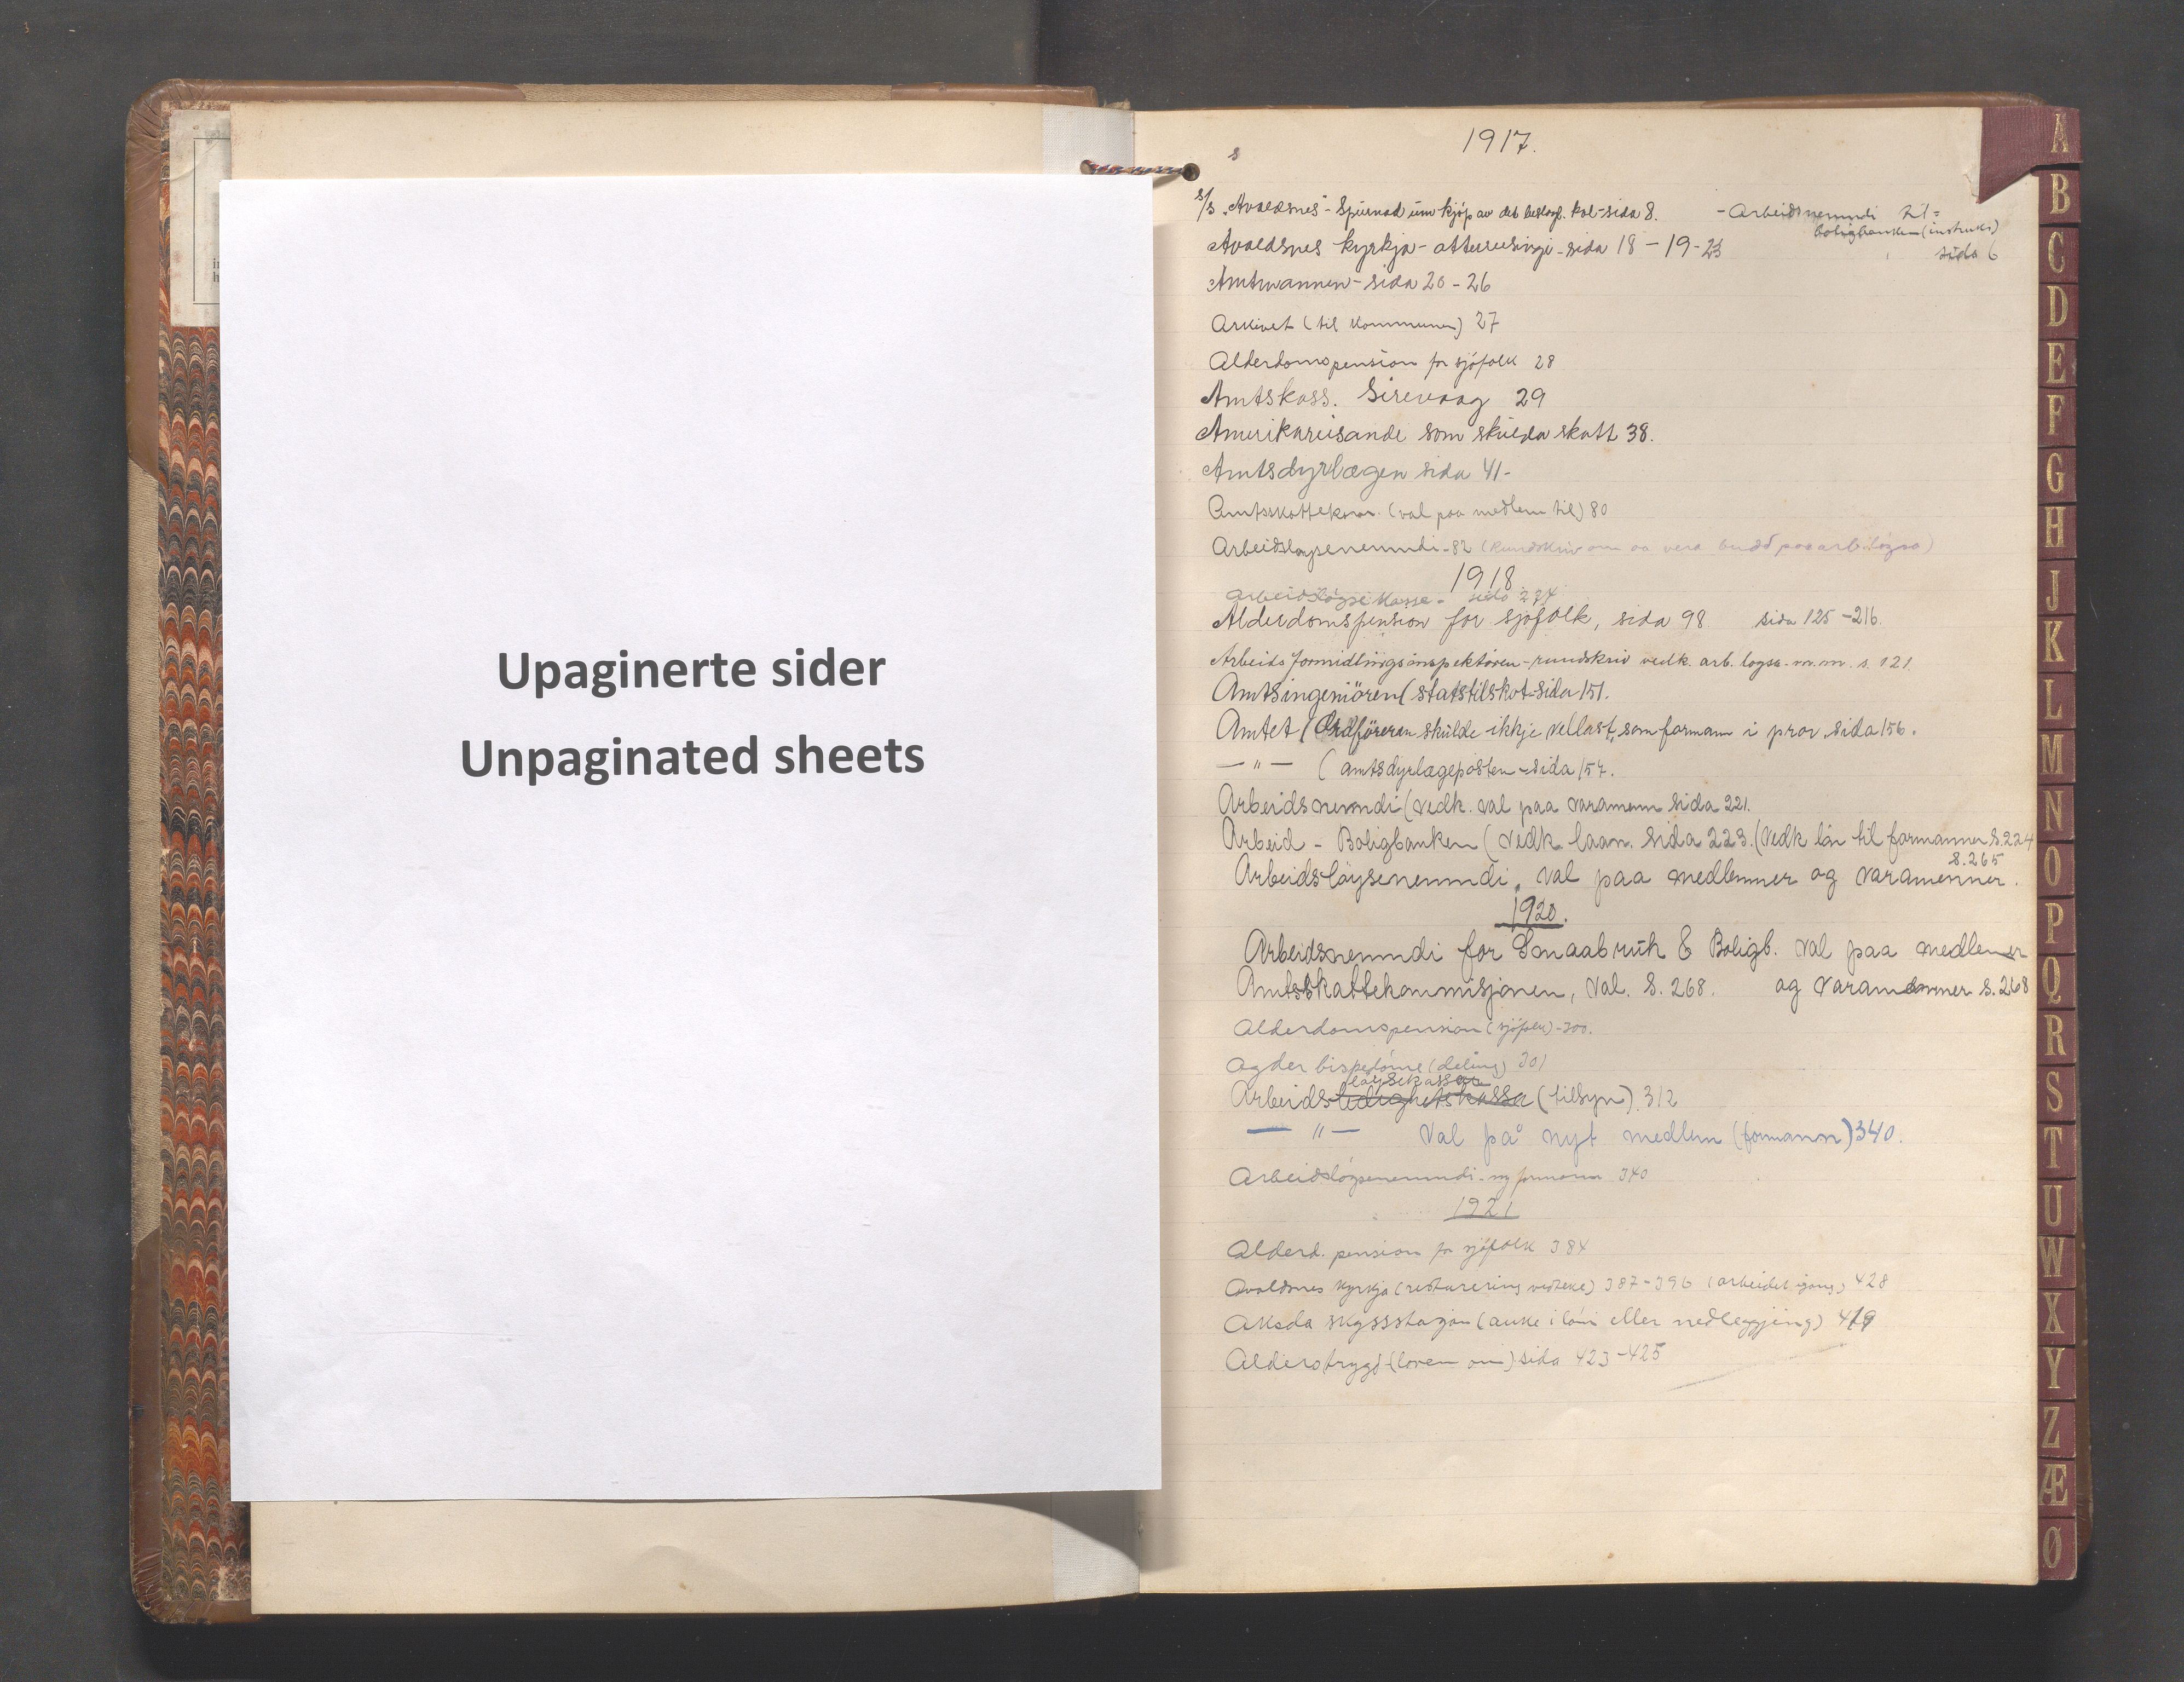 Upaginerte sider
Unpaginated sheets
1917.
s/s "Avaldsnes" - Spursmaal um kjøp av det beslagl. kol - sida 8.
- Arbeidsnemndi til =
boligbanken (instruks)
sida 6
Avaldsnes kyrkja - atterreisingi - sida 18 - 19 - 23
Amtmannen - sida 20 - 26
Arkivet (til kommunen) 27
Alderdomspension for sjøfolk 28
Amtskass. Sirevaag 29
Amerikareisande som skulda skatt 38.
Amtsdyrlægen sida 41 -
Amtsskattekom. (val paa medlem til) 80
Arbeidsløysenemndi - 82 (Rundskriv om aa vera budd paa arb.løysa)
1918
Arbeidsløysekasse - sida 234
Alderdomspension for sjøfolk, sida 98 sida 125 - 216.
Arbeidsformidlingsinspektøren - rundskriv vedk. arb.løysa m.m. s. 121.
Amtsingeniøren (statstilskot - sida 151.
Amtet (Ordføreren skulde ikkje velljast som formann i prov. sida 156.
— " — (amtsdyrlægeposten - sida 157.
Arbeidsnemndi (vedk. val paa varamenn sida 221.
Arbeid - Boligbanken (vedk. laan. sida 223. (vedk lån til formannen S. 224
Arbeidsløysenemndi, val paa medlemmer og varamenner. S. 265
1920.
Arbeidsnemndi for Smaabruk & Boligb. val paa medlemer
og varamenner S. 268
Amtsskattekommisjonen, val. S. 268.
Alderdomspension (sjøfolk) - 300.
Agder bispedøme (deling) 301
løysekassen
Arbeidsledighetskassa (tilsyn) 312
— " — Val på nyt medlem (formann) 340.
Arbeidsløysenemndi - ny formann 340
1921
Alderd. pension for sjøfolk 384
Avaldsnes kyrkja (restaurering vedteke) 387 - 396 (arbeidet igang) 428
Aksda skysstasjon (auke i løn eller nedleggjing) 419
Alderstrygd (loven om) sida 423 - 425
A
B
C
D
E
F
G
H
J
K
L
M
N
O
P
Q
R
S
T
U
W
X
Y
Z
Æ
Ø